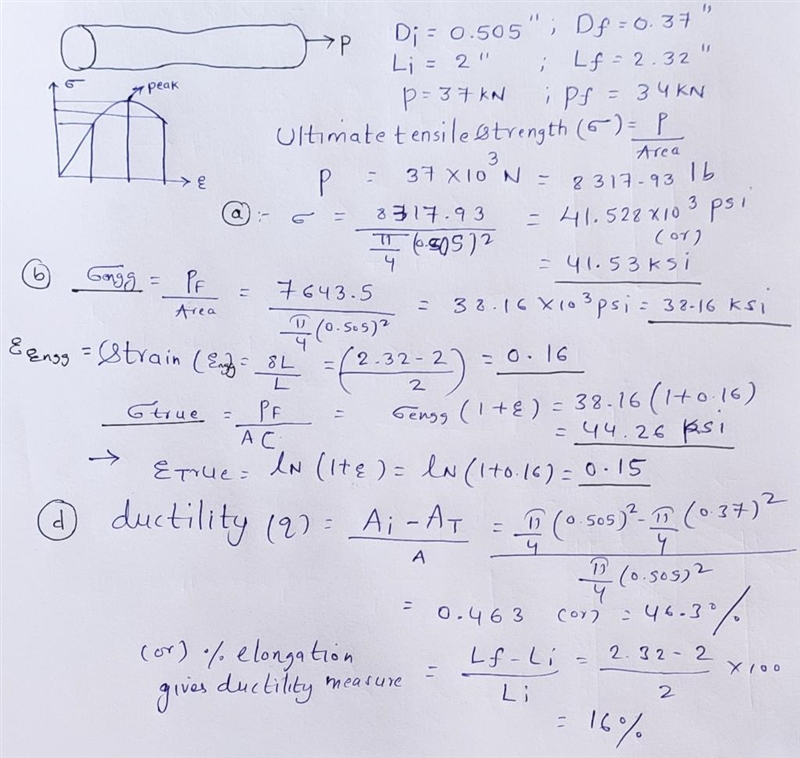 →P
σ
peak
ε
Di = 0.505" ; Df = 0.37"
Li = 2" ; Lf = 2.32"
P = 37 KN ; Pf = 34 KN
Ultimate tensile strength (σ) = P/Area
P = 37 × 10³ N = 8317.93 lb
(a) :- σ = 8317.93 / (π/4 (0.505)²) = 41.528 × 10³ psi
(or)
= 41.53 ksi
(b) σengg = PF/Area = 7643.5 / (π/4 (0.505)²) = 38.16 × 10³ psi = 38.16 ksi
εEngg = Strain (εEngg) = δL/L = ((2.32 - 2)/2) = 0.16
σtrue = PF/AC = σengg (1+ε) = 38.16 (1+0.16)
= 44.26 ksi
→ εTrue = lN (1+ε) = lN (1+0.16) = 0.15
(d) ductility (q) = (Ai - AT)/A = (π/4 (0.505)² - π/4 (0.37)²) / (π/4 (0.505)²)
= 0.463 (or) = 46.3%
(or) % elongation
gives ductility measure = (Lf - Li)/Li = (2.32 - 2)/2 × 100
= 16%